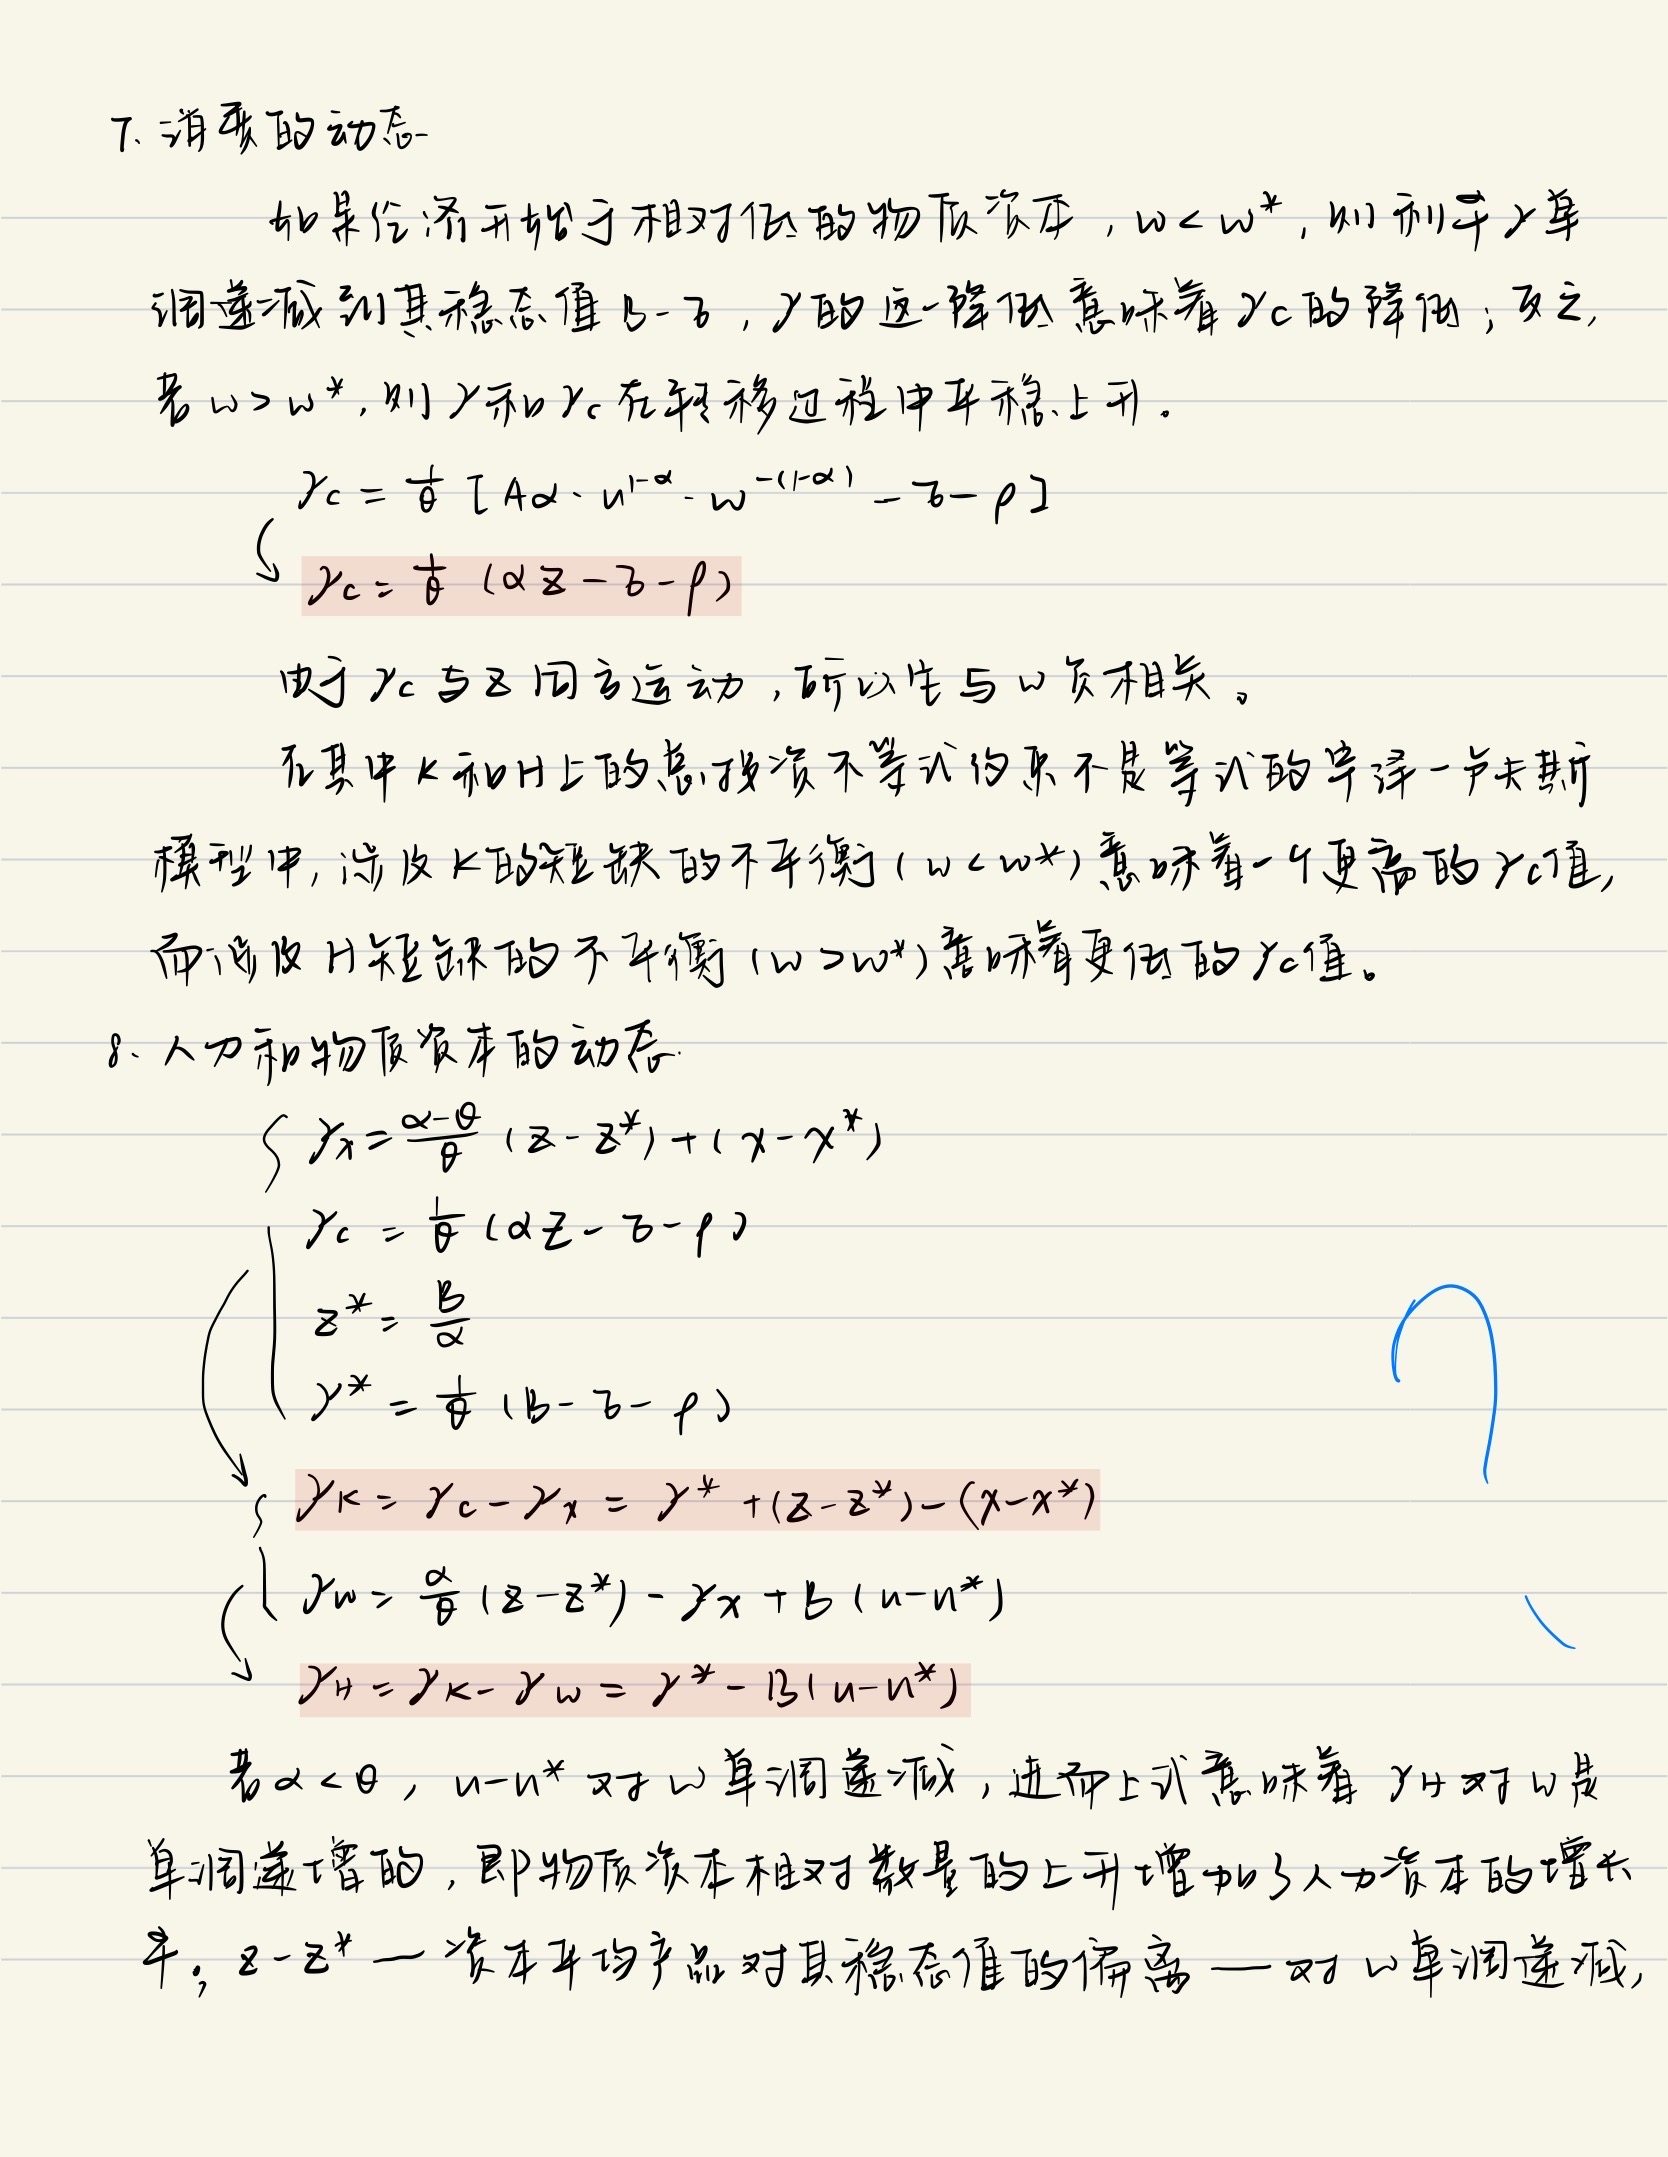 7. 消费的动态
如果经济开始于相对低的物质资本，ω<ω*，则利率γ单
调递减到其稳态值B-δ，γ的这一降低意味着γc的降低；反之，
若ω>ω*，则γ和γc在转移过程中平稳上升。
γc = 1/θ [Aα·u^(1-α)·ω^(-(1-α)) - δ - ρ]
γc = 1/θ (αz - δ - ρ)
由于γc与z同方运动，所以生与ω负相关。
在其中K和H上的总投资不等式约束不是等式的宇泽-卢卡斯
模型中，涉及K的短缺的不平衡(ω<ω*)意味着一个更高的γc值，
而涉及H短缺的不平衡(ω>ω*)意味着更低的γc值。
8. 人力和物质资本的动态
γχ = (α-θ)/θ (z-z*) + (χ-χ*)
γc = 1/θ (αz - δ - ρ)
z* = B/α
γ* = 1/θ (B - δ - ρ)
γK = γc - γχ = γ* + (z-z*) - (χ-χ*)
γω = α/θ (z-z*) - γχ + B(u-u*)
γH = γK - γω = γ* - B(u-u*)
若α<θ，u-u*对ω单调递减，进而上式意味着γH对ω是
单调递增的，即物质资本相对数量的上升增加了人力资本的增长
率。；z-z*—资本平均产品对其稳态值的偏离—对ω单调递减，